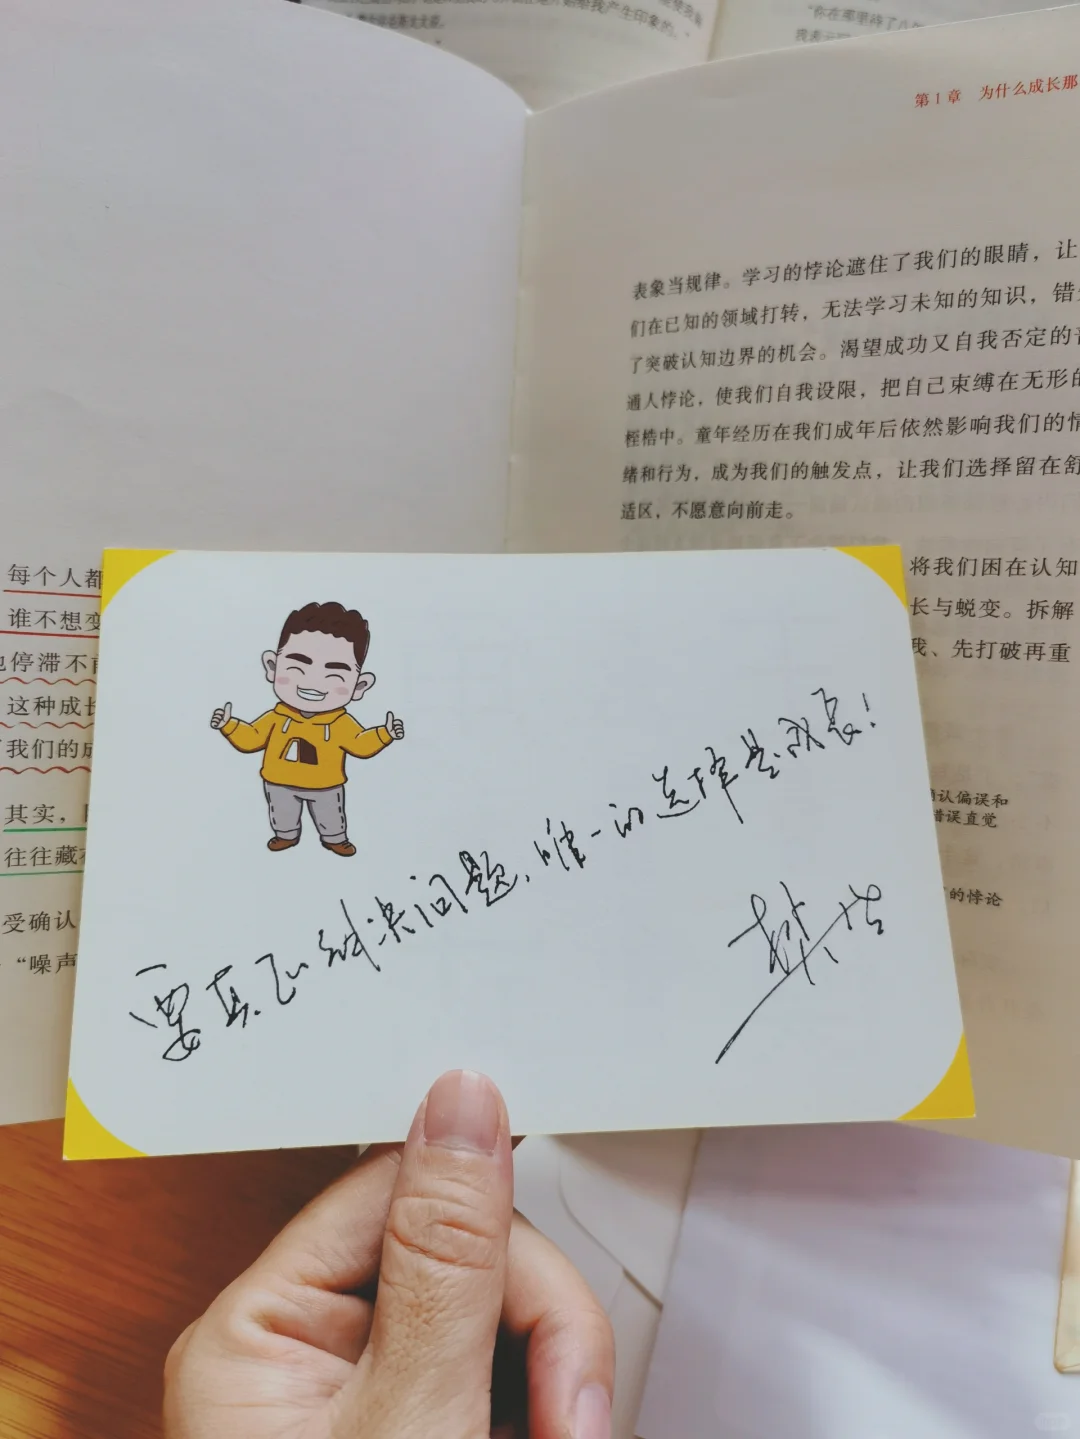 产生印象的。”
“你在那里待了八
第1章 为什么成长那
表象当规律。学习的悖论遮住了我们的眼睛，让
们在已知的领域打转，无法学习未知的知识，错
了突破认知边界的机会。渴望成功又自我否定的
通人悖论，使我们自我设限，把自己束缚在无形的
桎梏中。童年经历在我们成年后依然影响我们的情
绪和行为，成为我们的触发点，让我们选择留在舒
适区，不愿意向前走。
将我们困在认知
长与蜕变。拆解
我、先打破再重
认偏误和
错误直觉
的悖论
每个人都
谁不想变
也停滞不前
这种成长
我们的成
其实，
往往藏在
受确认
“噪声
要真正解决问题，唯一的选择是成长！
樊登